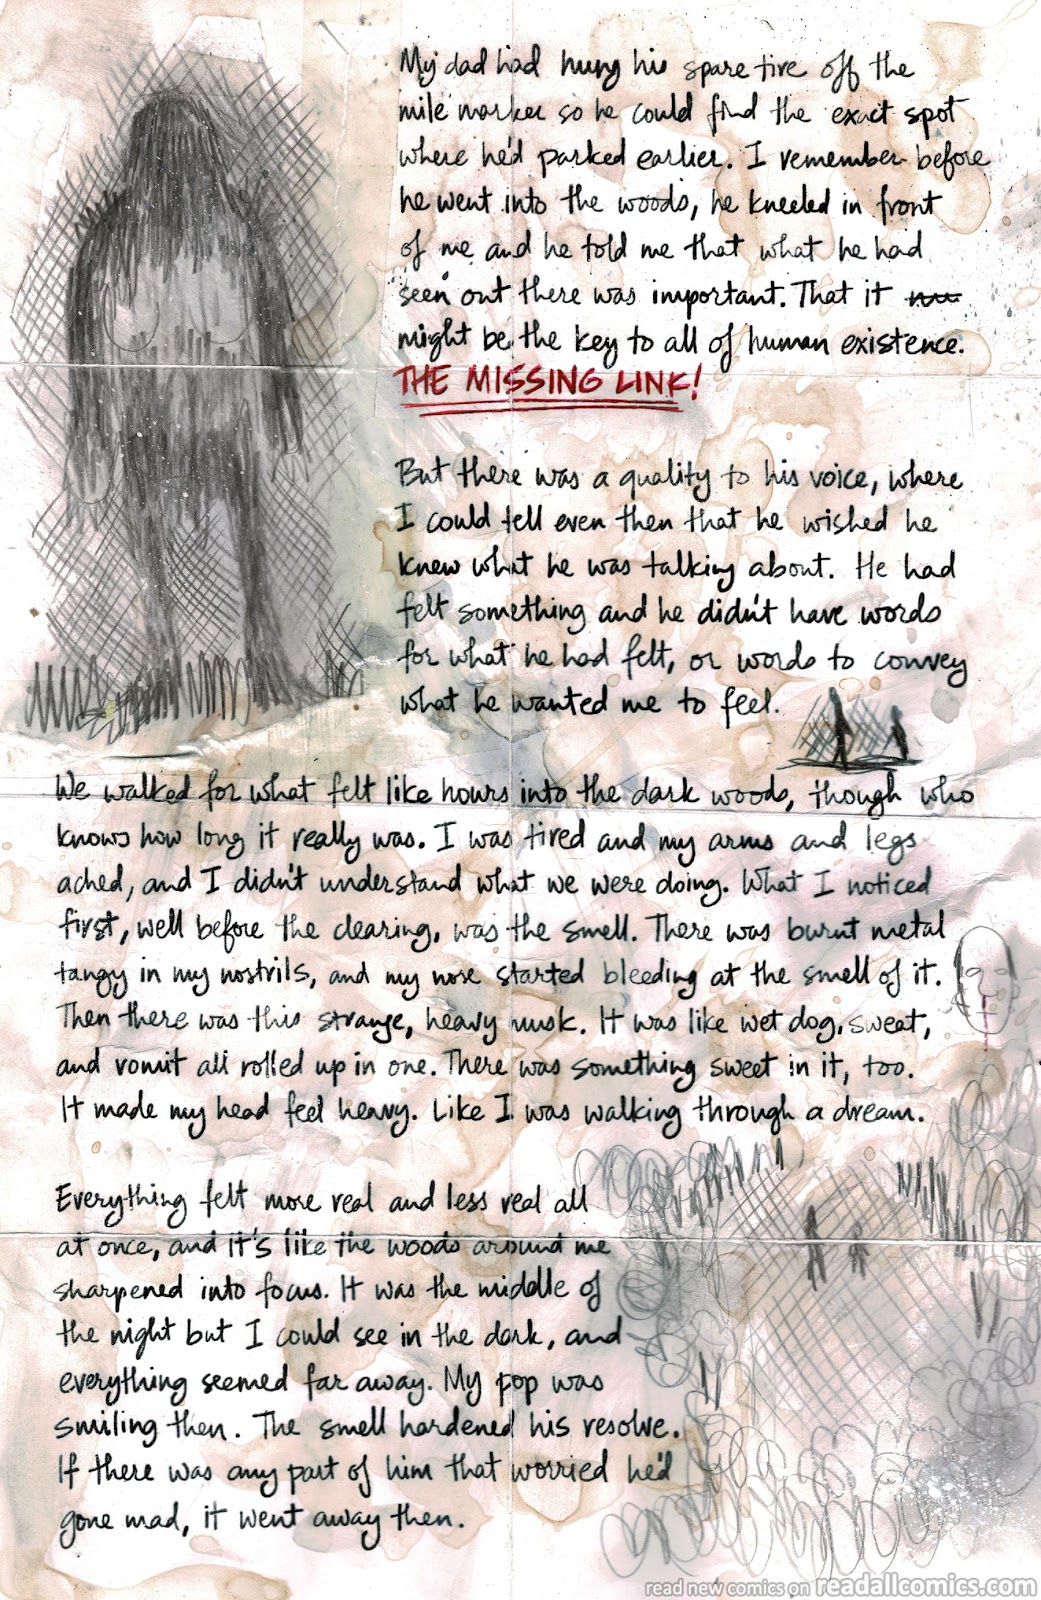 My dad had hung his spare tire off the
mile marker so he could find the exact spot
where he'd parked earlier. I remember before
he went into the woods, he kneeled in front
of me and he told me that what he had
seen out there was important. That it
might be the key to all of human existence.
THE MISSING LINK!
But there was a quality to his voice, where
I could tell even then that he wished he
knew what he was talking about. He had
felt something and he didn't have words
for what he had felt, or words to convey
what he wanted me to feel.
We walked for what felt like hours into the dark woods, though who
knows how long it really was. I was tired and my arms and legs
ached, and I didn't understand what we were doing. What I noticed
first, well before the clearing, was the smell. There was burnt metal
tangy in my nostrils, and my nose started bleeding at the smell of it.
Then there was this strange, heavy musk. It was like wet dog, sweat,
and vomit all rolled up in one. There was something sweet in it, too.
It made my head feel heavy. Like I was walking through a dream.
Everything felt more real and less real all
at once, and it's like the woods around me
sharpened into focus. It was the middle of
the night but I could see in the dark, and
everything seemed far away. My pop was
smiling then. The smell hardened his resolve.
If there was any part of him that worried he'd
gone mad, it went away then.
read new comics on readallcomics.com